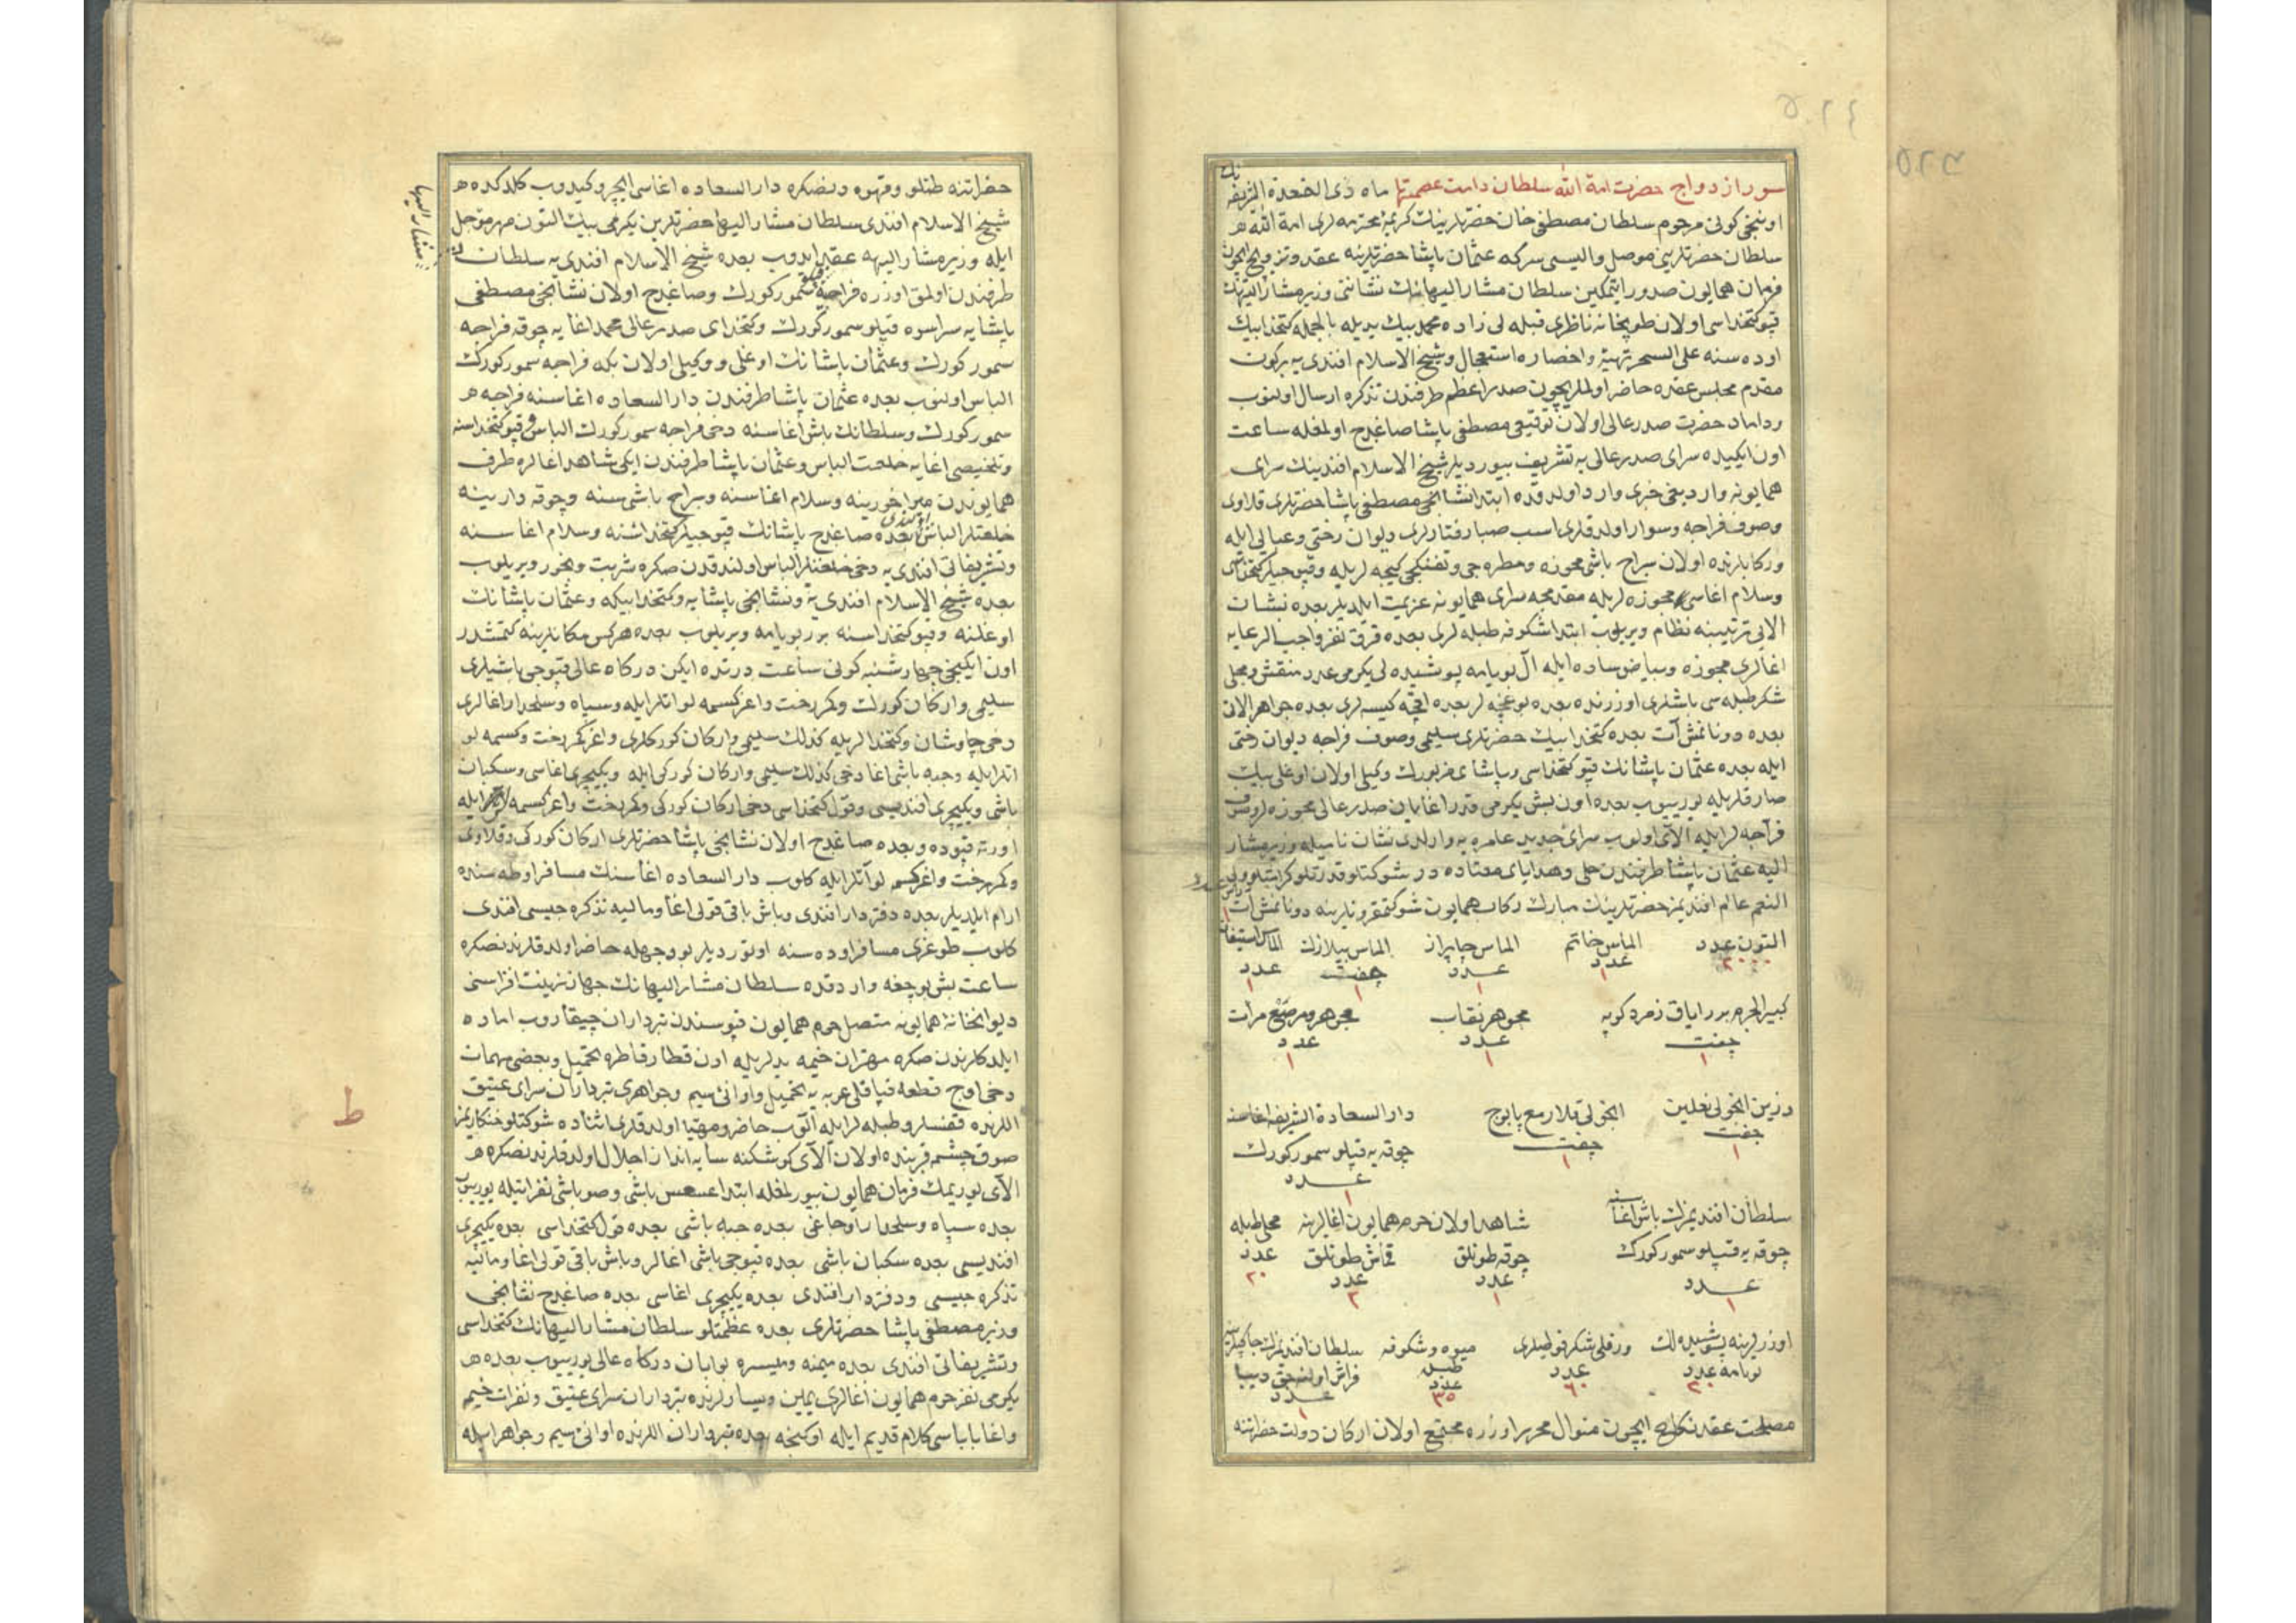 سور ازدواج حضرت امة الله سلطان دامت عصمتها ماه ذی القعدة الشریفه نك
اوننجی کونی مرحوم سلطان مصطفی خان حضرتلرینك کریمهٔ محترمه لری امة الله
سلطان حضرتلرینی موصل والیسی سرکه عثمان پاشا حضرتلرینه عقد وتزویج ایچون
فرمان همایون صدور ایتمکین سلطان مشار الیهانك نشاننی وزیر مشار الیهك
قپو کتخداسی اولان طوپخانه ناظری قبله لی زاده محمد بیك یدیله بالجمله کتخدا بیك
اوده سنه علی السحر تهیئه واحضاره استعجال وشیخ الاسلام افندی یه برکون
مقدم مجلس عقده حاضر اولملریچون صدر اعظم طرفندن تذکره ارسال اولنوب
وداماد حضرت صدر عالی اولان توقیعی مصطفی پاشا صاغدج اولمغله ساعت
اون ایکیده سرای صدر عالی یه تشریف بیوردیلر شیخ الاسلام افندینك سرای
همایونه واردیغی خبری وارد اولدقده ابتدا نشانجی مصطفی پاشا حضرتلری قلاوی
وصوف فراجه وسوار اولدقلری اسب صبا رفتارلری دیوان رختی وعبایی ایله
ورکابلرنده اولان سراج باشی مجوزه ومطره جی وتفنکجی کیجه لریله وقپوجیلر کتخداسی
وسلام اغاسی مجوزه لریله مقدمجه سرای همایونه عزیمت ایلدیلر بعده نشان
الایی ترتیبنه نظام ویریلوب ابتدا شکوفه طبله لری بعده قرق نفر واجب الرعایه
اغالری مجوزه وبیاض ساده ایله آل بویامه پوشیده لی یکرمی عدد منقش ومجلی
شکر طبله سی باشلری اوزرنده بعده بوغچه لر بعده اقچه کیسه لری بعده جواهر الان
بعده دونانمش آت بعده کتخدا بیك حضرتلری سلیمی وصوف فراجه دیوان رختی
ایله بعده عثمان پاشانك قپو کتخداسی وپاشای مزبورك وکیلی اولان اوغلی بیك
صارقلریله یوریوب بعده اون بش یکرمی قدر اغایان صدر عالی مجوزه لر وصوف
فراجه لر ایله الای اولوب سرای جدید عامره یه وارلدی نشان نامیله وزیر مشار
الیه عثمان پاشا طرفندن حلی وهدایای معتاده در شوکتلو قدرتلو کرامتلو ولی
النعم عالم افندیمز حضرتلرینك مبارك رکاب همایون شوکتمقرونلرینه دونانمش آت
التون عدد ٢٠٠٠ الماس خاتم عدد ١ الماس چاپراز عدد ١ الماس بیلازك جفت ١ الماس استیفان عدد ١
کبیر الجرم بدر ایاق زمرد کوپه جفت ١ مجوهر نقاب عدد ١ مجوهر ومرصع مرآت عدد ١
وزرین انجولی نعلین جفت ١ انجولی قلار مع پابوج جفت ١ دار السعادة الشریفه اغاسنه
چوقه یه قپلو سمور کورك عدد ١
سلطان افندیمزك باش اغاسنه شاهد اولان حرم همایون اغالرینه مجلی طبله
چوقه یه قپلو سمور کورك عدد ١ چوقه طونلق عدد ١ قماش طونلق عدد ٢ عدد ٢٠
اوزرلرینه پوشیده لك ورقلی شکر فوطیلری میوه وشکوفه سلطان افندیمزك
بویامه عدد ٢٠ عدد ٦٠ طبل عدد ٣٥ فراش اولنه جق دیبا عدد ١
مصلحت عقد نکاح ایچون منوال محرر اوزره مجتمع اولان ارکان دولت حضراتنه
حضراتنه طتلو وقهوه دنصکره دار السعاده اغاسی ایچرو کیدوب کلدکده
شیخ الاسلام افندی سلطان مشار الیها حضرتلرین یکرمی بیك التون مهر مؤجل
ایله وزیر مشار الیهه عقد ایدوب بعده شیخ الاسلام افندی یه سلطان
مشار الیها
طرفندن اولمق اوزره فراجه لق سمور کورك وصاغدج اولان نشانجی مصطفی
پاشایه سراسره قپلو سمور کورك وکتخدای صدر عالی محمد اغایه چوقه فراجه
سمور کورك وعثمان پاشانك اوغلی ووکیلی اولان بکه فراجه سمور کورك
الباس اولنوب بعده عثمان پاشا طرفندن دار السعاده اغاسنه فراجه
سمور کورك وسلطانك باش اغاسنه دخی فراجه سمور کورك الباس وقپو کتخداسنه
وتلخیصی اغایه خلعت الباس وعثمان پاشا طرفندن ایکی شاهد اغالره طرف
همایوندن میراخورینه وسلام اغاسنه وسراج باشی سنه وچوقه دارینه
خلعتلر الباس اولندی بعده صاغدج پاشانك قپوجیلر کتخداسنه وسلام اغاسنه
وتشریفاتی افندی یه دخی خلعتلر الباس اولندقدن صکره شربت وبخور ویریلوب
بعده شیخ الاسلام افندی یه ونشانجی پاشایه وکتخدا بیکه وعثمان پاشانك
اوغلنه وقپو کتخداسنه برر بویامه ویریلوب بعده هرکس مکانلرینه کتمشدر
اون ایکنجی چهارشنبه کونی ساعت درتده ایکن درکاه عالی قپوجی باشیلری
سلیمی وارکان کورك وکمر رخت واغر کسمه لو اتلر ایله وسپاه وسلحدار اغالری
دخی چاوشان وکتخدالریله کذلك سلیمی وارکان کورکلری واغر کمر رخت وکسمه لو
اتلر ایله وجبه باشی اغا دخی کذلك سلیمی وارکان کورکی ایله ویکیچری اغاسی وسکبان
باشی ویکیچری افندیسی وقول کتخداسی دخی ارکان کورکی وکمر رخت واغر کسمه لو اتلر ایله
اورته قپوده وبعده صاغدج اولان نشانجی پاشا حضرتلری ارکان کورکی وقلاوی
وکمر رخت واغر کسمه لو آتلر ایله کلوب دار السعاده اغاسنك مسافر اوطه سنده
ارام ایلدیلر بعده دفتردار افندی وباش باقی قولی اغا ومالیه تذکره جیسی افندی
کلوب طوغری مسافر اوده سنه اوتوردیلر بو وجهله حاضر اولدقلرندنصکره
ساعت بش بوچغه واردقده سلطان مشار الیهانك جهاز زینت افزاسنی
دیوانخانهٔ همایونه متصل حرم همایون قپوسندن تبرداران چیقاروب اماده
ایلدکلرندن صکره مهتران خیمه یدلریله اون قطار قاطره تحمیل وبعضی مهمات
دخی اوج قطعه قپاقلی عربه یه تحمیل واوانئ سیم وجواهری تبرداران سرای عتیق
اللرنده قفسلر وطبله لر ایله آلوب حاضر ومهیا اولدقلری اثناده شوکتلو خنکاریمز
صوق چشمه قربنده اولان آلای کوشکنه سایه انداز اجلال اولدقلرندنصکره
الای یوریمك فرمان همایون بیورلمغله ابتدا عسس باشی وصوباشی نفراتیله یوریوب
بعده سپاه وسلحدار اوجاغی بعده جبه باشی بعده قول کتخداسی بعده یکیچری
افندیسی بعده سکبان باشی بعده قپوجی باشی اغالر وباش باقی قولی اغا ومالیه
تذکره جیسی ودفتردار افندی بعده یکیچری اغاسی بعده صاغدج نشانجی
وزیر مصطفی پاشا حضرتلری بعده عظمتلو سلطان مشار الیهانك کتخداسی
وتشریفاتی افندی بعده میمنه ومیسره بوابان درکاه عالی یوریوب بعده
یکرمی نفر حرم همایون اغالری یمین ویسارلرنده تبرداران سرای عتیق ونفرات خیمه
واغا باباسی کلام قدیم ایله اوکنجه بعده تبرداران اللرنده اوانئ سیم وجواهر ایله
ط